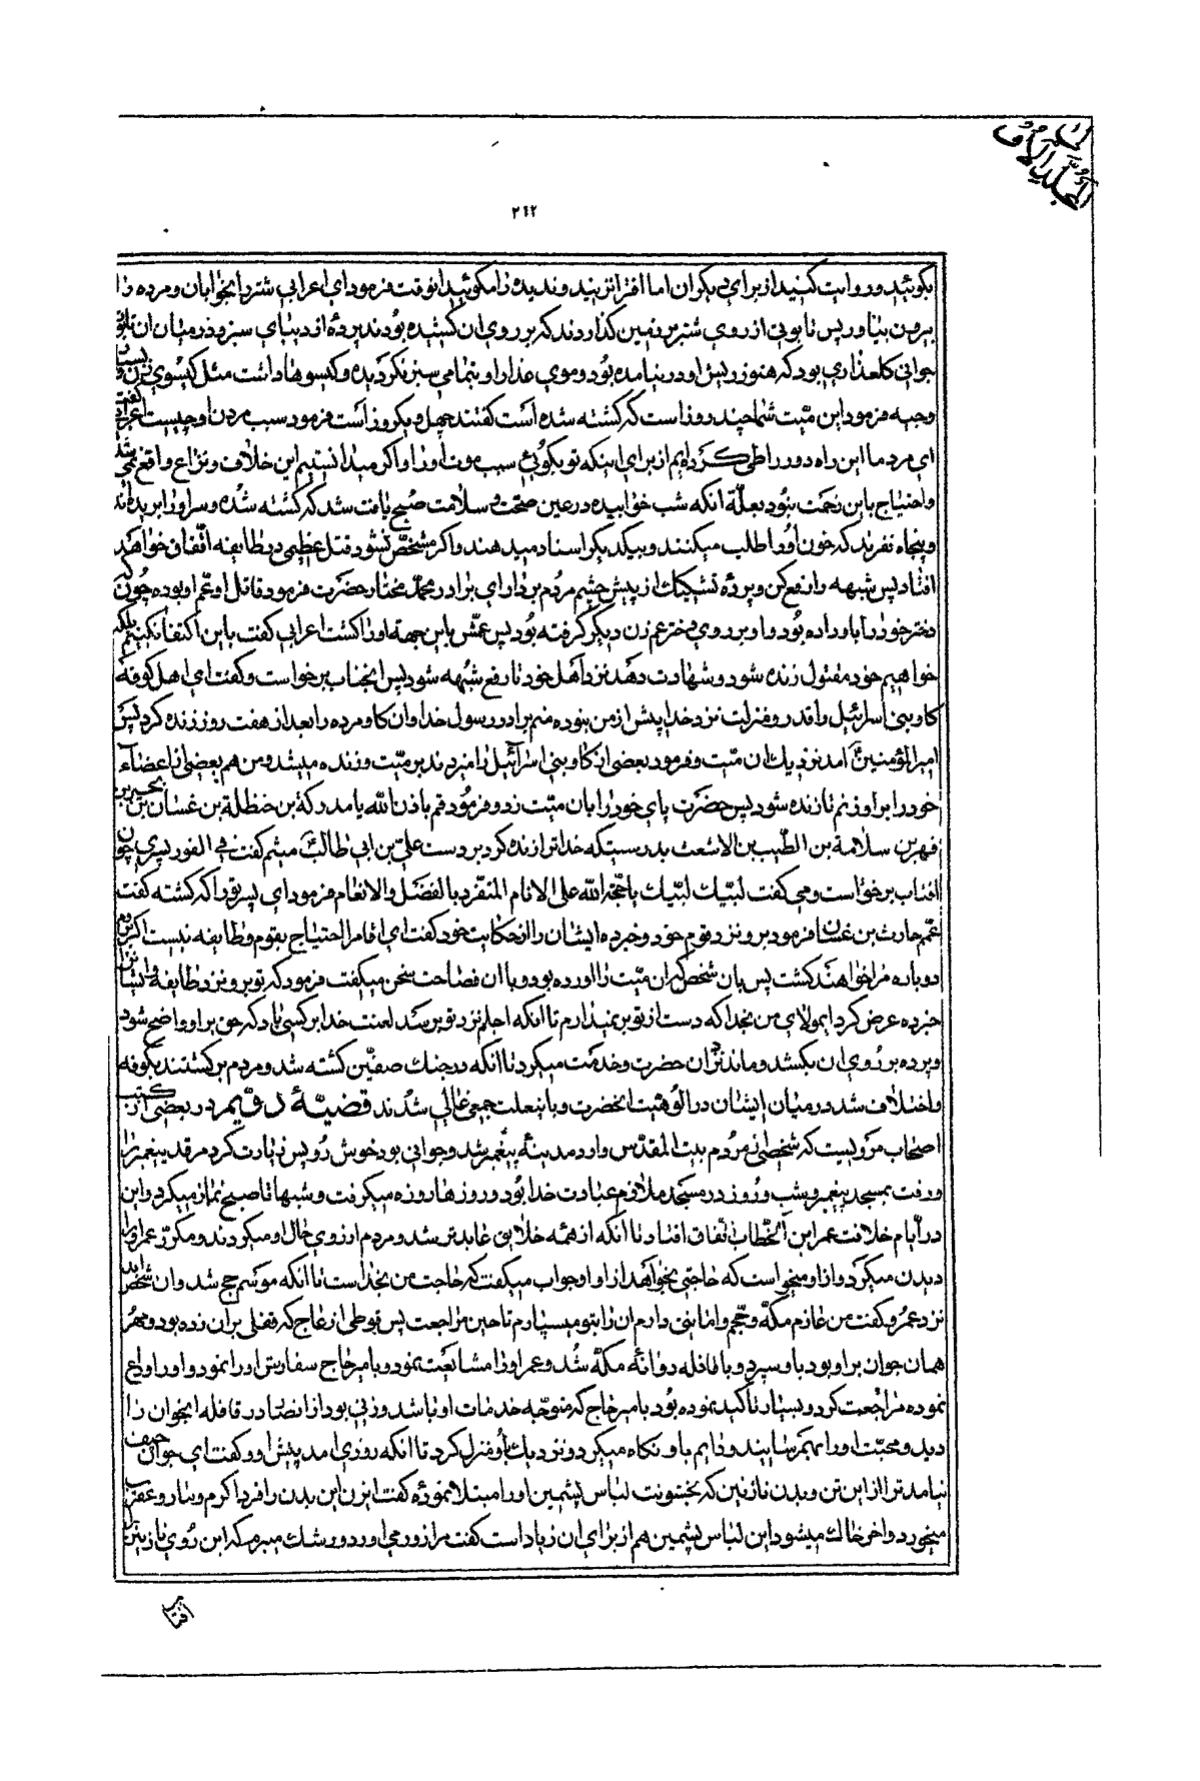 المجلد الأول
٢٤٢
بگوئید و روایت کنید از برای دیگران اما افترا نزنید و ندیده را مگوئید انوقت فرمود ای اعرابی شتر را بخوابان و مرده را
بیرون بیاور پس تابوتی از روی شتر بر زمین گذاردند که بر روی ان کشیده بودند پردهٔ از دیبای سبز و در میان ان تابوت
جوانی گلعذاری بود که هنوز ریش او در نیامده بود و موی عذار او بتمامی سبز نگردیده و گیسوها داشت مثل گیسوی زن
وجیه فرمود این میّت شما چند روز است که کشته شده است گفتند چهل و یکروز است فرمود سبب مردن او چیست اعرابی گفت
ای مرد ما این راه دور را طی کرده‌ایم از برای اینکه تو بگوئی سبب موت او را و اگر میدانستیم این خلاف و نزاع واقع نمی شد
و احتیاج باین زحمت نبود بعلّة انکه شب خوابیده در عین صحت و سلامت صبح یافت شد که کشته شده و سر او را بریده‌اند
و پنجاه نفرند که خون او را طلب میکنند و بیکدیگر اسناد میدهند و اگر مشخّص نشود قتل عظیمی در طایفه اتّفاق خواهد
افتاد پس شبهه را رفع کن و پردهٔ تشکیک از پیش چشم مردم بردار ای برادر محمّد مختار حضرت فرمود قاتل او عمّ او بوده چون که
دختر خود را باو داده بود و او بر روی دختر عم زن دیگر گرفته بود پس عمّش باین جهة او را کشت اعرابی گفت باین اکتفا نکنیم بلکه
خواهیم خود مقتول زنده شود و شهادت دهد نزد اهل خود تا رفع شبهه شود پس انجناب برخواست و گفت ای اهل کوفه
گاو بنی اسرائیل را قدر و منزلت نزد خدا پیش از من نبوده منم برادر رسول خدا و ان گاو مرده را بعد از هفت روز زنده کرد پس
امیر المؤمنین آمد نزدیک ان میّت و فرمود بعضی از گاو بنی اسرائیل را میزدند بر میّت و زنده میشد و من هم بعضی از اعضاء
خود را بر او زنم تا زنده شود پس حضرت پای خود را بان میّت زد و فرمود قم باذن الله یا مدرکة بن حنظلة بن غسان بن بحیر بن
فهر بن سلامة بن الطّیب بن الاشعث بدرستیکه خدا ترا زنده کرد بر دست علیّ بن ابی طالب میثم گفت فی الفور پسری چون
افتاب برخواست و می گفت لبّیک لبّیک یا حجّة الله علی الانام المتفرّد بالفضل والانعام فرمود ای پسر تو را که کشته گفت
عمّم حارث بن غسان فرمود برو نزد قوم خود و خبر ده ایشان را از حکایت خود گفت ای اقا مرا احتیاج بقوم و طایفه نیست اگر بروم
دوباره مرا خواهند کشت پس بان شخص که ان میّت را اورده بود و با ان فصاحت سخن میگفت فرمود که تو برو نزد طایفه و ایشان را
خبر ده عرض کرد ایمولای من بخدا که دست از تو بر نمیدارم تا انکه اجلم نزد تو برسد لعنت خدا بر کسی باد که حق بر او واضح شود
و پرده بر روی ان بکشد و ماند نزد ان حضرت و خدمت میکرد تا انکه در جنک صفّین کشته شد و مردم برگشتند بکوفه
و اختلاف شد در میان ایشان در الوهیّت انحضرت و باینعلت جمعی غالی شدند قضیّهٔ دوّیم در بعضی از کتب
اصحاب مرویست که شخصی از مردم بیت المقدّس وارد مدینهٔ پیغمبر شد و جوانی بود خوش رو پس زیارت کرد مرقد پیغمبر را
و رفت بمسجد پیغمبر و شب و روز در مسجد ملازم عبادت خدا بود و روزها روزه میگرفت و شبها تا صبح نماز میکرد و این
در ایام خلافت عمر ابن الخطاب اتّفاق افتاد تا انکه از همه خلایق عابدتر شد و مردم ارزوی حال او میکردند و مکرّر عمر او را
دیدن میکرد و از او میخواست که حاجتی بخواهد از او او جواب میگفت که حاجت من بخداست تا انکه موسم حج شد و ان شخص آمد
نزد عمر و گفت من عازم مکّه و حجم و امانتی دارم ان را بتو میسپارم تا حین مراجعت پس قوطی از عاج که قفلی بران زده بود و مهر
همان جوان بر او بود باو سپرد و با قافله روانهٔ مکّه شد و عمر او را مشایعت نمود و بامیر حاج سفارش او را نمود و او را وداع
نموده مراجعت کرد و بسیار تاکید نموده بود بامیر حاج که متوجّه خدمات او باشد و زنی بود از انصار در قافله انجوان را
دید و محبّت او را بهم رسانید و دایم باو نگاه میکرد و نزدیک باو منزل کرد تا انکه روزی امد پیش او و گفت ای جوان حیف
نیامد ترا از این تن و بدن نازنین که بخشونت لباس پشمین او را مبتلا نمودهٔ گفت ایزن این بدن را فردا کرم و مار و عقرب
میخورد و اخر خاک میشود این لباس پشمین هم از برای ان زیاد است گفت مرا زور می اورد و رشک میبرم که این روی نازنین ترا
افتاب